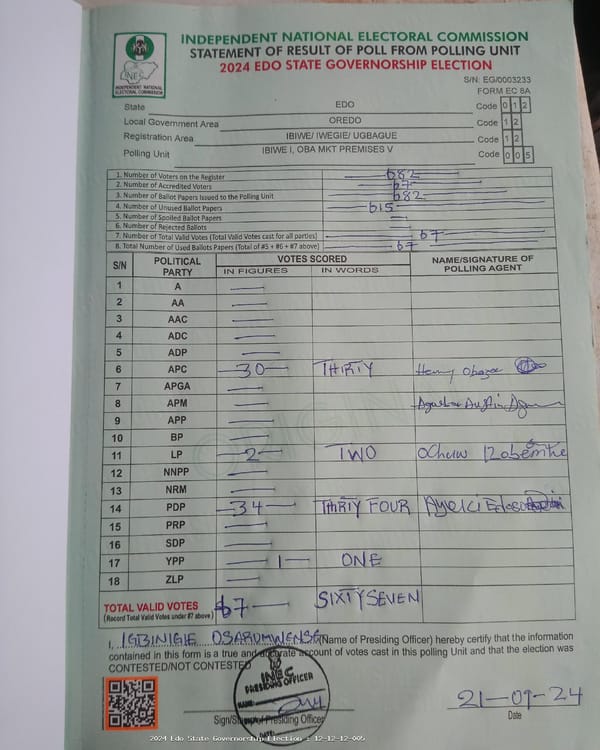 INDEPENDENT NATIONAL ELECTORAL COMMISSION
STATEMENT OF RESULT OF POLL FROM POLLING UNIT
2024 EDO STATE GOVERNORSHIP ELECTION
INEC
INDEPENDENT NATIONAL ELECTORAL COMMISSION
S/N: EG/0003233
FORM EC 8A
State EDO Code 0 1 2
Local Government Area OREDO Code 1 2
Registration Area IBIWE/ IWEGIE/ UGBAGUE Code 1 2
Polling Unit IBIWE I, OBA MKT PREMISES V Code 0 0 5
1. Number of Voters on the Register 682
2. Number of Accredited Voters 67
3. Number of Ballot Papers Issued to the Polling Unit 682
4. Number of Unused Ballot Papers 615
5. Number of Spoiled Ballot Papers —
6. Number of Rejected Ballots —
7. Number of Total Valid Votes (Total Valid Votes cast for all parties) 67
8. Total Number of Used Ballots Papers (Total of #5 + #6 + #7 above) 67
S/N POLITICAL PARTY VOTES SCORED NAME/SIGNATURE OF POLLING AGENT
IN FIGURES IN WORDS
1 A —
2 AA —
3 AAC —
4 ADC —
5 ADP —
6 APC 30 THIRTY Henry
7 APGA —
8 APM — Austin
9 APP —
10 BP —
11 LP 2 TWO
12 NNPP —
13 NRM —
14 PDP 34 THIRTY FOUR
15 PRP —
16 SDP —
17 YPP 1 ONE
18 ZLP —
TOTAL VALID VOTES 67 SIXTY SEVEN
(Record Total Valid Votes under #7 above)
I, IGBINIGIE OSARUMWENSE (Name of Presiding Officer) hereby certify that the information
contained in this form is a true and accurate account of votes cast in this polling Unit and that the election was
CONTESTED/NOT CONTESTED
INEC
PRESIDING OFFICER
21-09-24
Sign/Stamp of Presiding Officer Date
2024 Edo State Governorship Election : 12-12-12-005